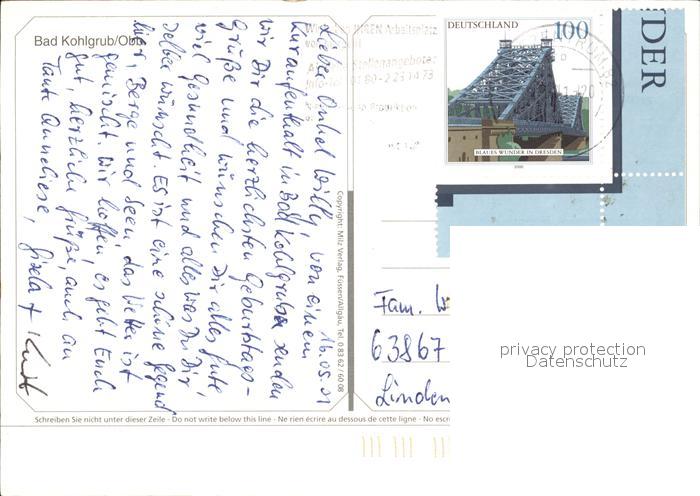 Bad Kohlgrub/Obb
16.05.01
Lieber Onkel Willy, von einem
Kuraufenthalt in Bad Kohlgrub senden
wir Dir die herzlichsten Geburtstags-
Grüße und wünschen Dir alles Gute
viel Gesundheit und alles was Du Dir
selber wünscht. Es ist eine schöne Gegend
hier, Berge und Seen, das Wetter ist
gemischt. Wir hoffen, es geht Euch
gut, herzliche Grüße, auch an
Tante Anneliese, Gisela + Kurt
Copyright: Milz Verlag, Füssen/Allgäu, Tel. 0 83 62/60 08
IHREN Arbeitsplatz
Stellenangebote:
DEUTSCHLAND 100
BLAUES WUNDER IN DRESDEN
2000
DER
Fam.
63867
Linden
privacy protection
Datenschutz
Schreiben Sie nicht unter dieser Zeile - Do not write below this line - Ne rien écrire au dessous de cette ligne - No escr